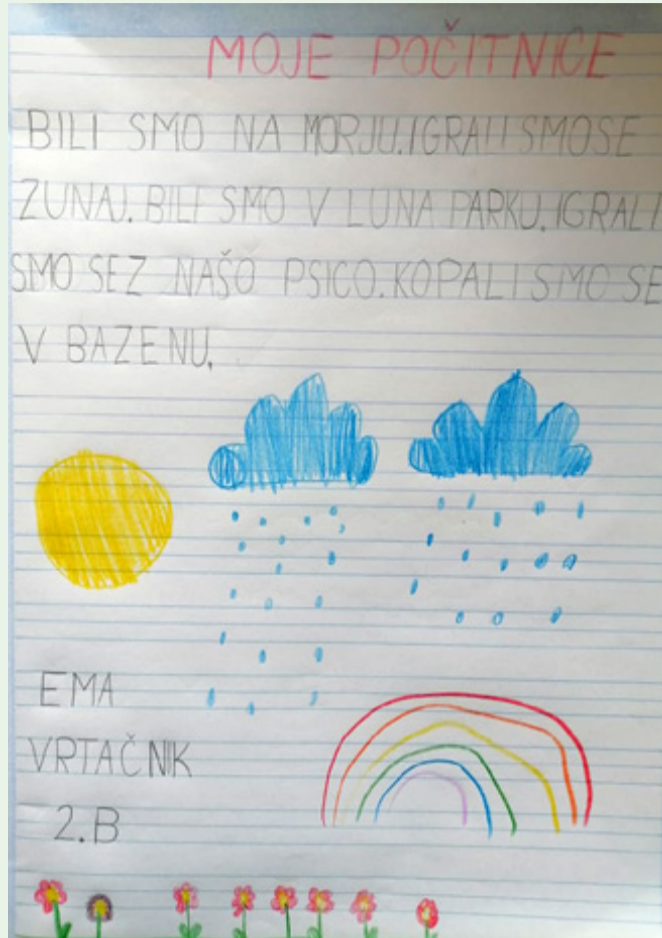 MOJE POČITNICE
BILI SMO NA MORJU.IGRALI SMOSE
ZUNAJ. BILI SMO V LUNA PARKU.IGRALI
SMO SEZ NAŠO PSICO.KOPALI SMO SE
V BAZENU.
EMA
VRTAČNIK
2.B